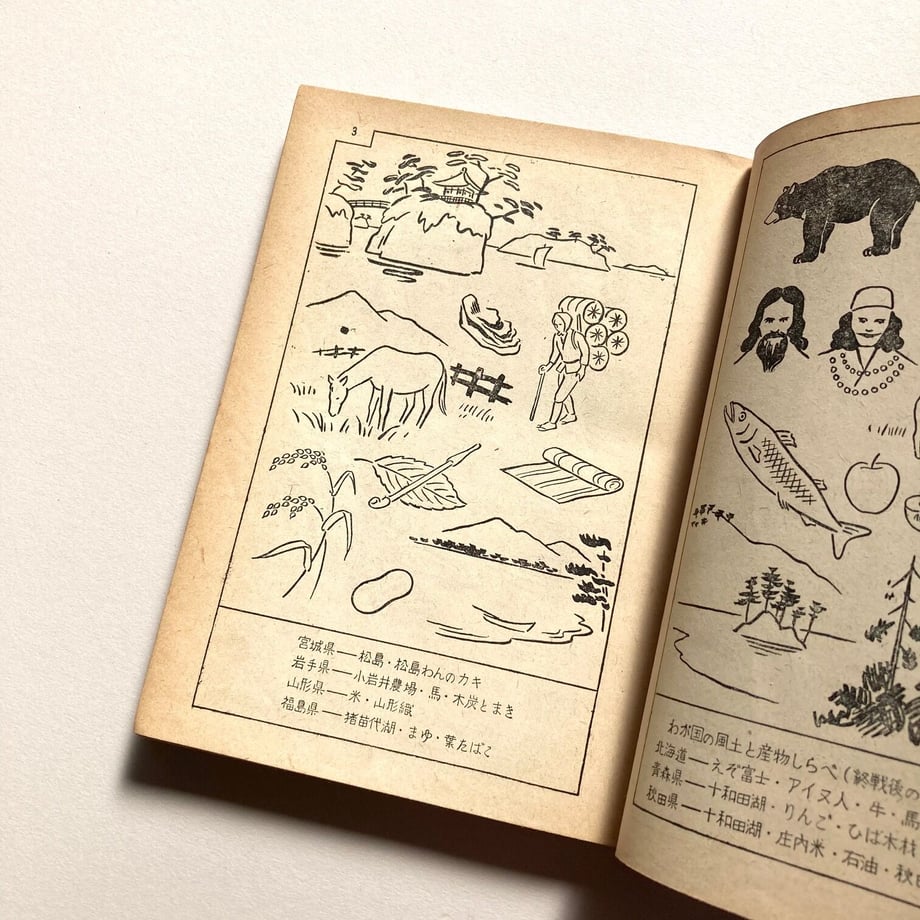 3
宮城県——松島・松島わんのカキ
岩手県——小岩井農場・馬・木炭とまき
山形県——米・山形織
福島県——猪苗代湖・まゆ・葉たばこ
わが国の風土と産物しらべ(終戦後の
北海道——えぞ富士・アイヌ人・牛・馬
青森県——十和田湖・りんご・ひば木材
秋田県——十和田湖・庄内米・石油・秋田